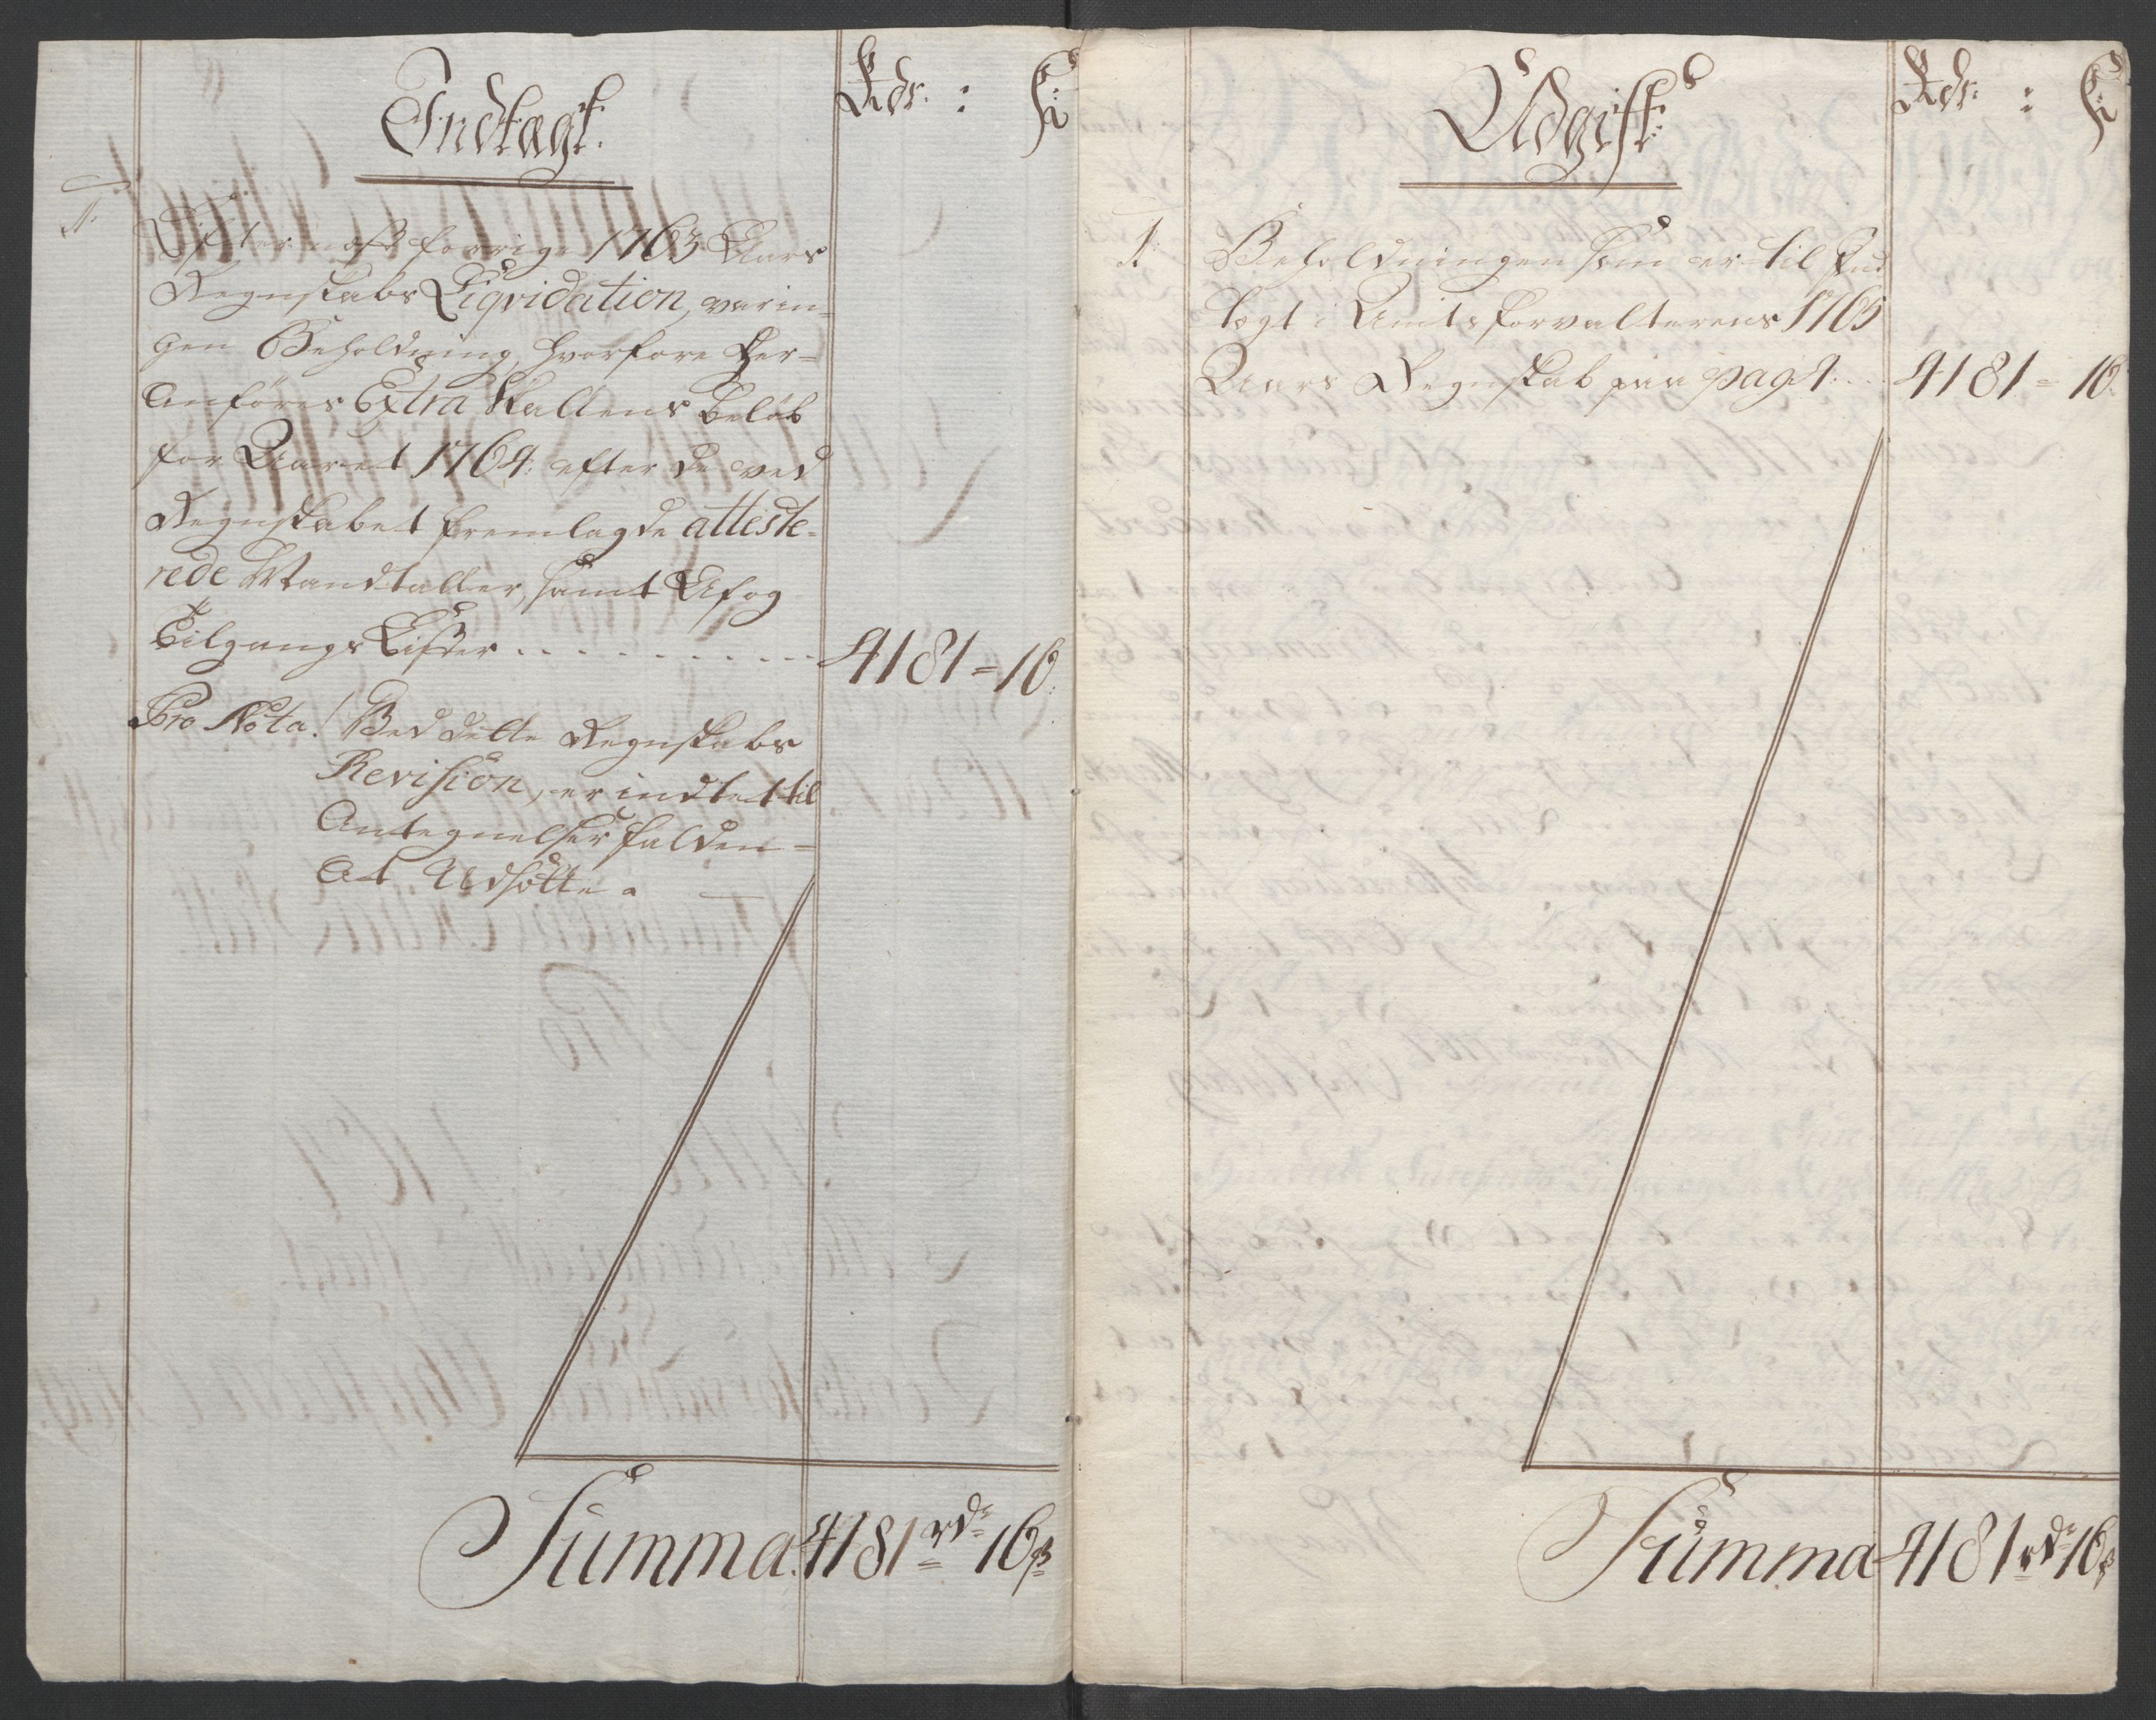 Indtægt.
Rdr: ß
1. Efter næst forrige 1763 Aars
Regnskabs Liqvidation, var in-
gen Beholdning, hvorfore her-
anføres Extra Skattens Beløb
for Aaret 1764: efter de ved
Regnskabet fremlagde atteste-
rede Mandtaller, samt Af og
Tilgangs Lister . . . . . . . . . . 4181 = 16:
Pro Nota! Ved dette Regnskabs
Revision, er indtet til
Antegnelser falden-
at Udsætte.
Summa. 4181 rd 16 ß
Udgift
Rdr: ß
1: Beholdningen som er til Ind
tægt i Amtsforvalterens 1765
Aars Regnskab paa pag 1: . . 4181 = 16.
Summa 4181 rd 16 ß